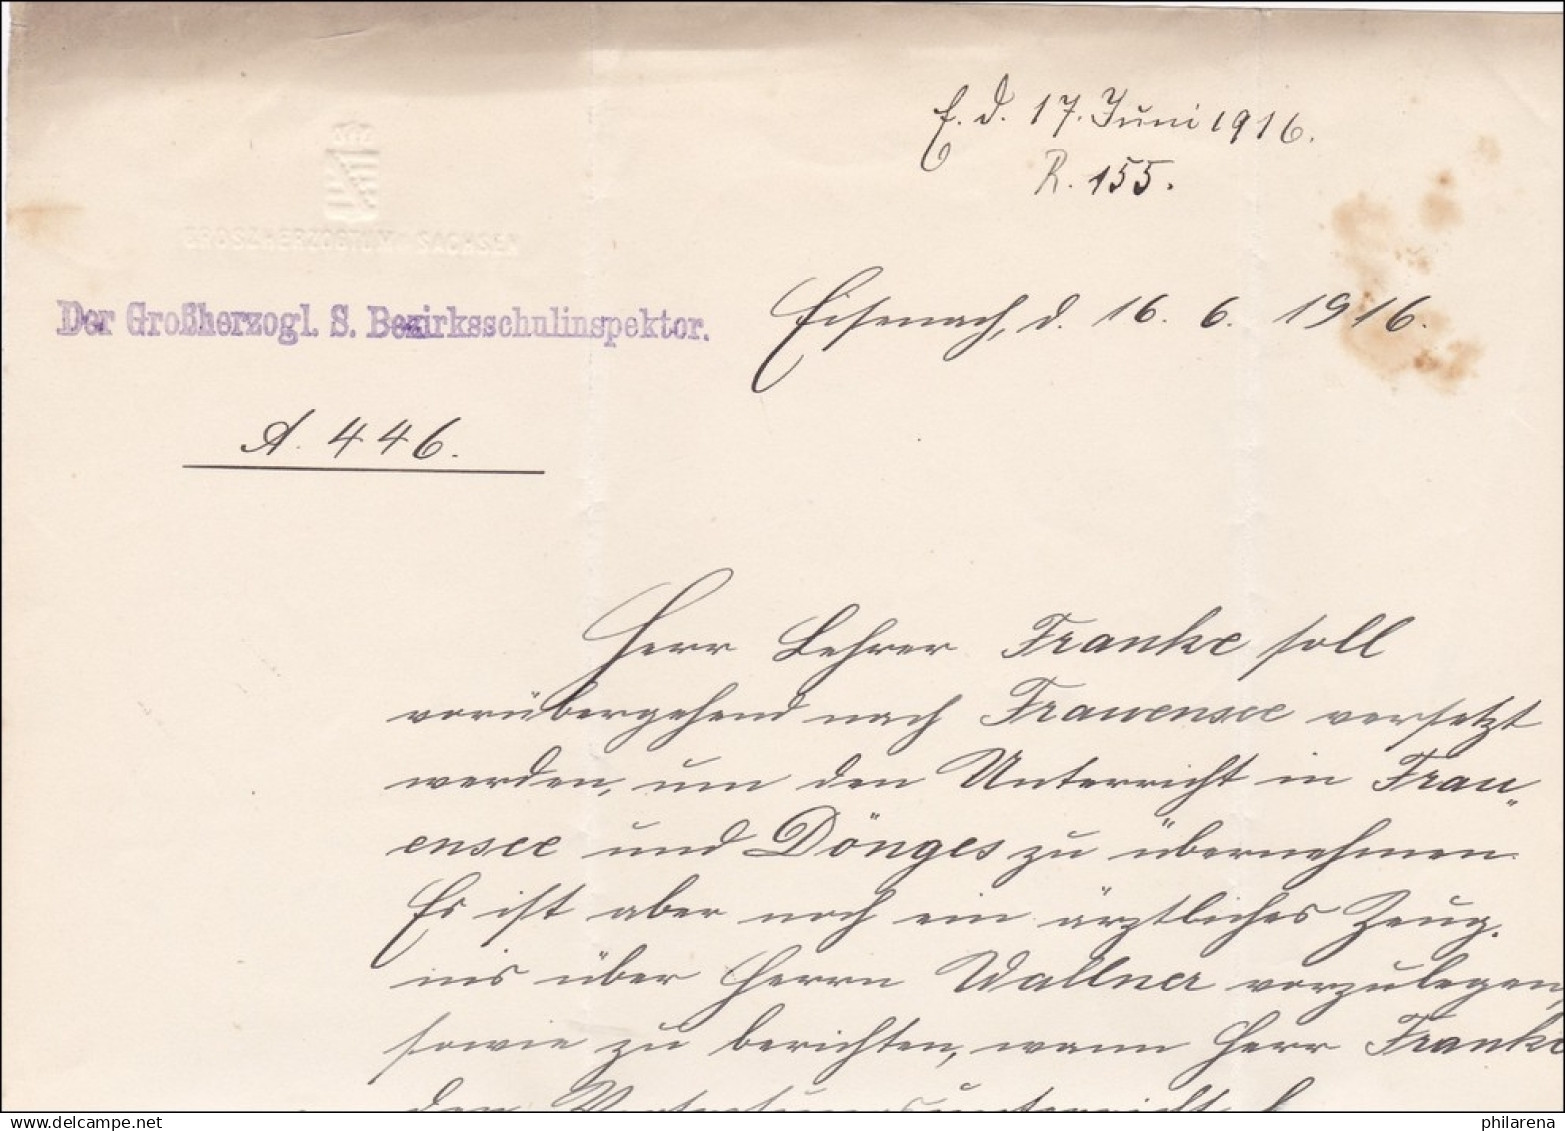 E. d. 17. Juni 1916.
R. 155.
GROSZHERZOGTUM SACHSEN
Der Großherzogl. S. Bezirksschulinspektor.
Eisenach, d. 16. 6. 1916.
A. 446.
Herr Lehrer Franke soll
vorübergehend nach Frauensee versetzt
werden, um den Unterricht in Frau„
ensee und Dönges zu übernehmen.
Es ist aber noch ein ärztliches Zeug.
nis über Herrn Wallner vorzulegen,
sowie zu berichten, wann Herr Franke
den Vertretungsunterricht
philarena